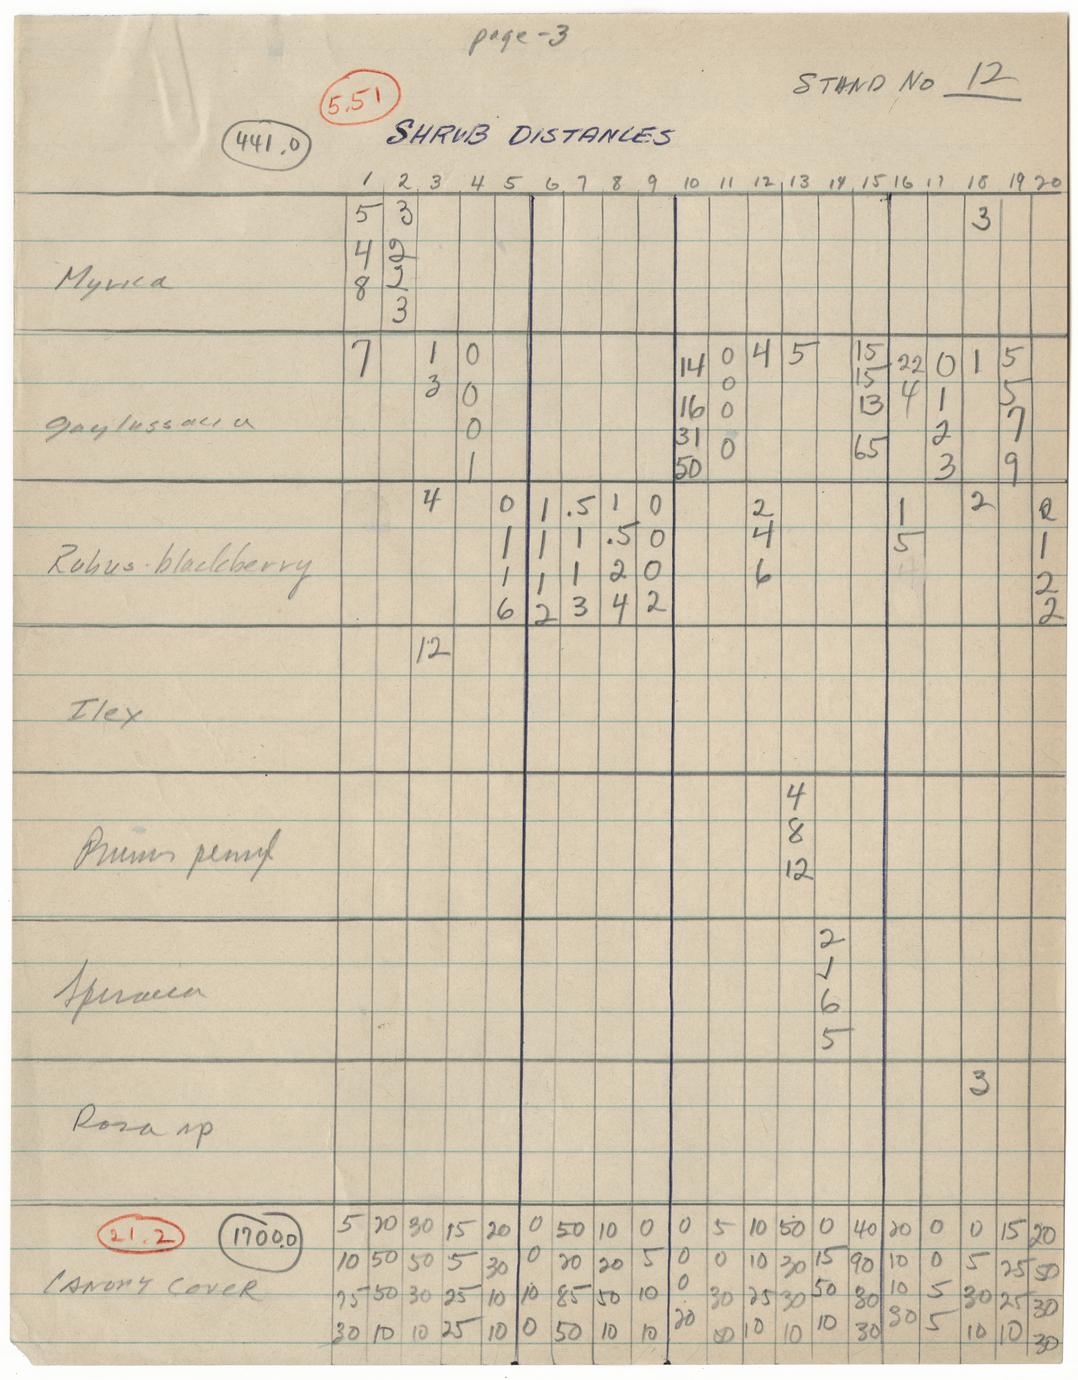 page-3
STAND No 12
5.51
441.0
SHRUB DISTANCES
1 2 3 4 5 6 7 8 9 10 11 12 13 14 15 16 17 18 19 20
5 3 3
4 2
Myrica 8 2
3
7 1 0 14 0 4 5 15 22 0 1 5
3 0 0 15 4 1 5
gaylussacia 0 16 0 13 2 7
1 31 0 65 3 9
50
4 0 1 .5 1 0 2 1 2
1 1 1 .5 0 4 5 1
Rubus-blackberry 1 1 1 2 0 6 2
6 2 3 4 2 2
12
Ilex
4
8
Prunus pensyl 12
2
Speraea 6
5
3
Rosa sp
21.2 1700.0 5 20 30 15 20 0 50 10 0 0 5 10 50 0 40 20 0 0 15 20
10 50 50 5 30 0 20 20 5 0 0 10 30 15 90 10 0 5 25 50
CANOPY COVER 50 30 25 10 10 85 50 10 0 30 25 30 50 80 10 5 30 25 30
30 10 10 25 10 0 50 10 10 20 10 10 10 30 30 5 10 10 30